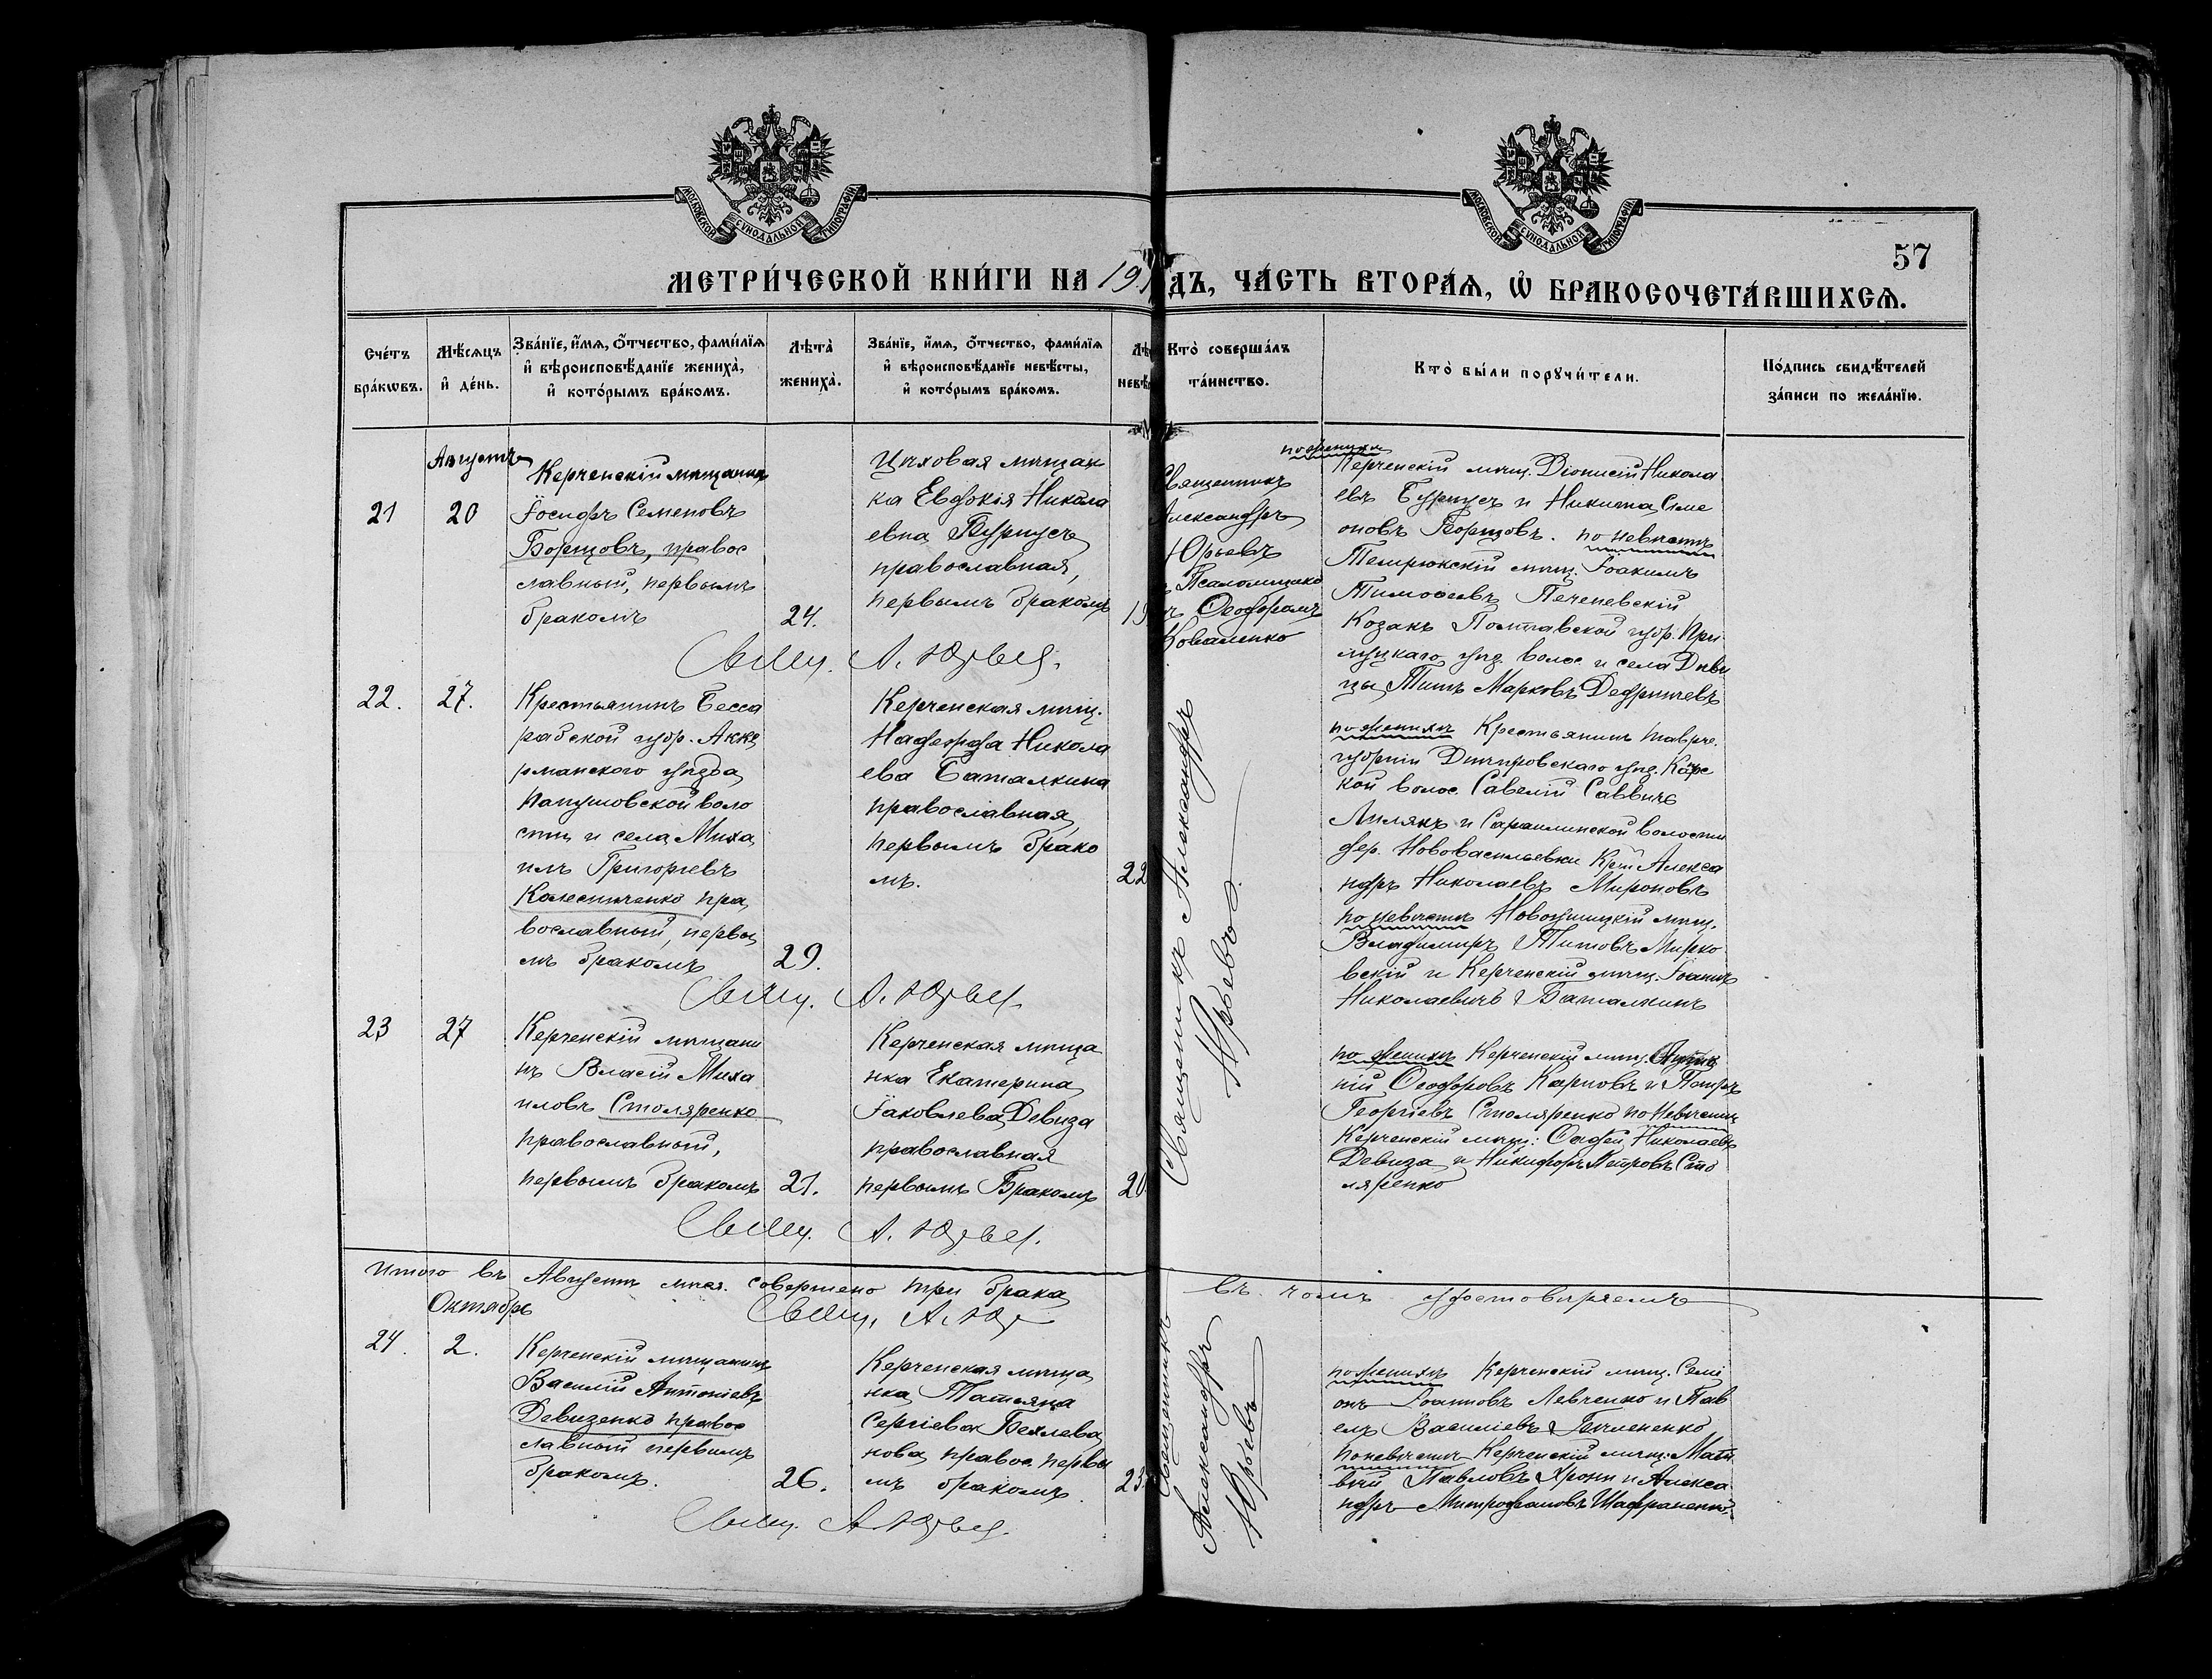 МОСКОВСКОЙ СУНОДАЛЬНОЙ ТИПОГРАФІИ
МОСКОВСКОЙ СУНОДАЛЬНОЙ ТИПОГРАФІИ
57
МЕТРИ́ЧЕСКОЙ КНИ́ГИ НА 19
ДЪ, ЧА́СТЬ ВТОРА́Ѧ, Ѡ҆ БРАКОСОЧЕТА́ВШИХСѦ.
Сче́тъ бра́кѡвъ.
Мѣ́сѧцъ и҆ де́нь.
Зва́нїе, и҆́мѧ, ѻ҆́тчество, фами́лїѧ
и҆ вѣроисповѣ́данїе жениха̀,
и҆ кото́рымъ бра́комъ.
Лѣта̀
жениха̀.
Зва́нїе, и҆́мѧ, ѻ҆́тчество, фами́лїѧ
и҆ вѣроисповѣ́данїе невѣ́сты,
и҆ кото́рымъ бра́комъ.
Кто̀ соверша́лъ
та́инство.
Кто̀ бы́ли порꙋчи́тели.
По́дпись свидѣ́телей
за́писи по жела́нїю.
Августъ
21
20
Керченскій мѣщанинъ
Іосифъ Семеновъ
Борщовъ, правос
лавный, первымъ
бракомъ
24.
Цеховая мѣщан
ка Евдокія Никола
евна Бурнусъ
православная,
первымъ бракомъ
19
Священникъ
Александръ
Юрьевъ
Псаломщико
Ѳеодоромъ
Коваленко
по женихѣ
Керченскій мѣщ. Діонисій Никола
евъ Бурнусъ и Никита Симе
оновъ Борщовъ. по невѣстѣ
Темрюкскій мѣщ. Іоакимъ
Тимоѳеевъ Печеневскій
Козакъ Полтавской губ. При
луцкаго уѣз. волос. и села Дѣви
цы Титъ Марковъ
Свящ. А. Юрьев.
22.
27.
Крестьянинъ Бесса
рабской губ. Акке
рманского уѣзда
воло
сти и села Миха
илъ Григорьевъ
Колесниченко пра
вославный, первы
мъ бракомъ
29.
Керченская мѣщ.
Надежда Никола
ева Баталкина
православная
первымъ брако
мъ.
22
Священникъ Александръ
Юрьевъ.
по женихѣ Крестьянинъ Таврич.
губерніи Днѣпровскаго уѣз.
кой волос. Савелій Саввичъ
Лилякъ и волости
дер. Нововасильевки Кр-нъ Алекса
ндръ Николаевъ Мироновъ
по невѣстѣ мѣщ.
Владимиръ Титовъ Мирко
вскій и Керченскій мѣщ. Іоаннъ
Николаевичъ Баталкинъ
Свящ. А. Юрьев.
23
27
Керченскій мѣщани
нъ Власій Миха
иловъ Столяренко
православный,
первымъ бракомъ
21.
Керченская мѣща
нка Екатерина
Іаковлева Девиза
православная
первымъ бракомъ
20
по женихѣ Керченскій мѣщ.
ній Ѳеодоровъ Карповъ и Петръ
Георгіевъ Столяренко по невѣстѣ
Керченскій мѣщ: Николаевъ
Девиза и Никифоръ Петровъ Сто
ляренко
Свящ. А. Юрьев.
Итого въ Августѣ мѣся. совершено три брака
въ чемъ удостовѣряемъ
Свящ. А. Юр
Октябрь
24.
2.
Керченскій мѣщанинъ
Василій Антоніевъ
Девизенко правос
лавный первымъ
бракомъ.
26.
Керченская мѣща
нка Татьяна
Сергіева
нова правос. первы
мъ бракомъ.
23
Священникъ
Александръ
Юрьевъ
по женихѣ Керченскій мѣщ. Семі
онъ Іоанновъ Левченко и Пав
елъ Василіевъ
по невѣстѣ Керченскій мѣщ. Мат
вѣй Павловъ и Алекса
ндръ Митрофановъ Шафраненко.
Свящ. А. Юрьев.